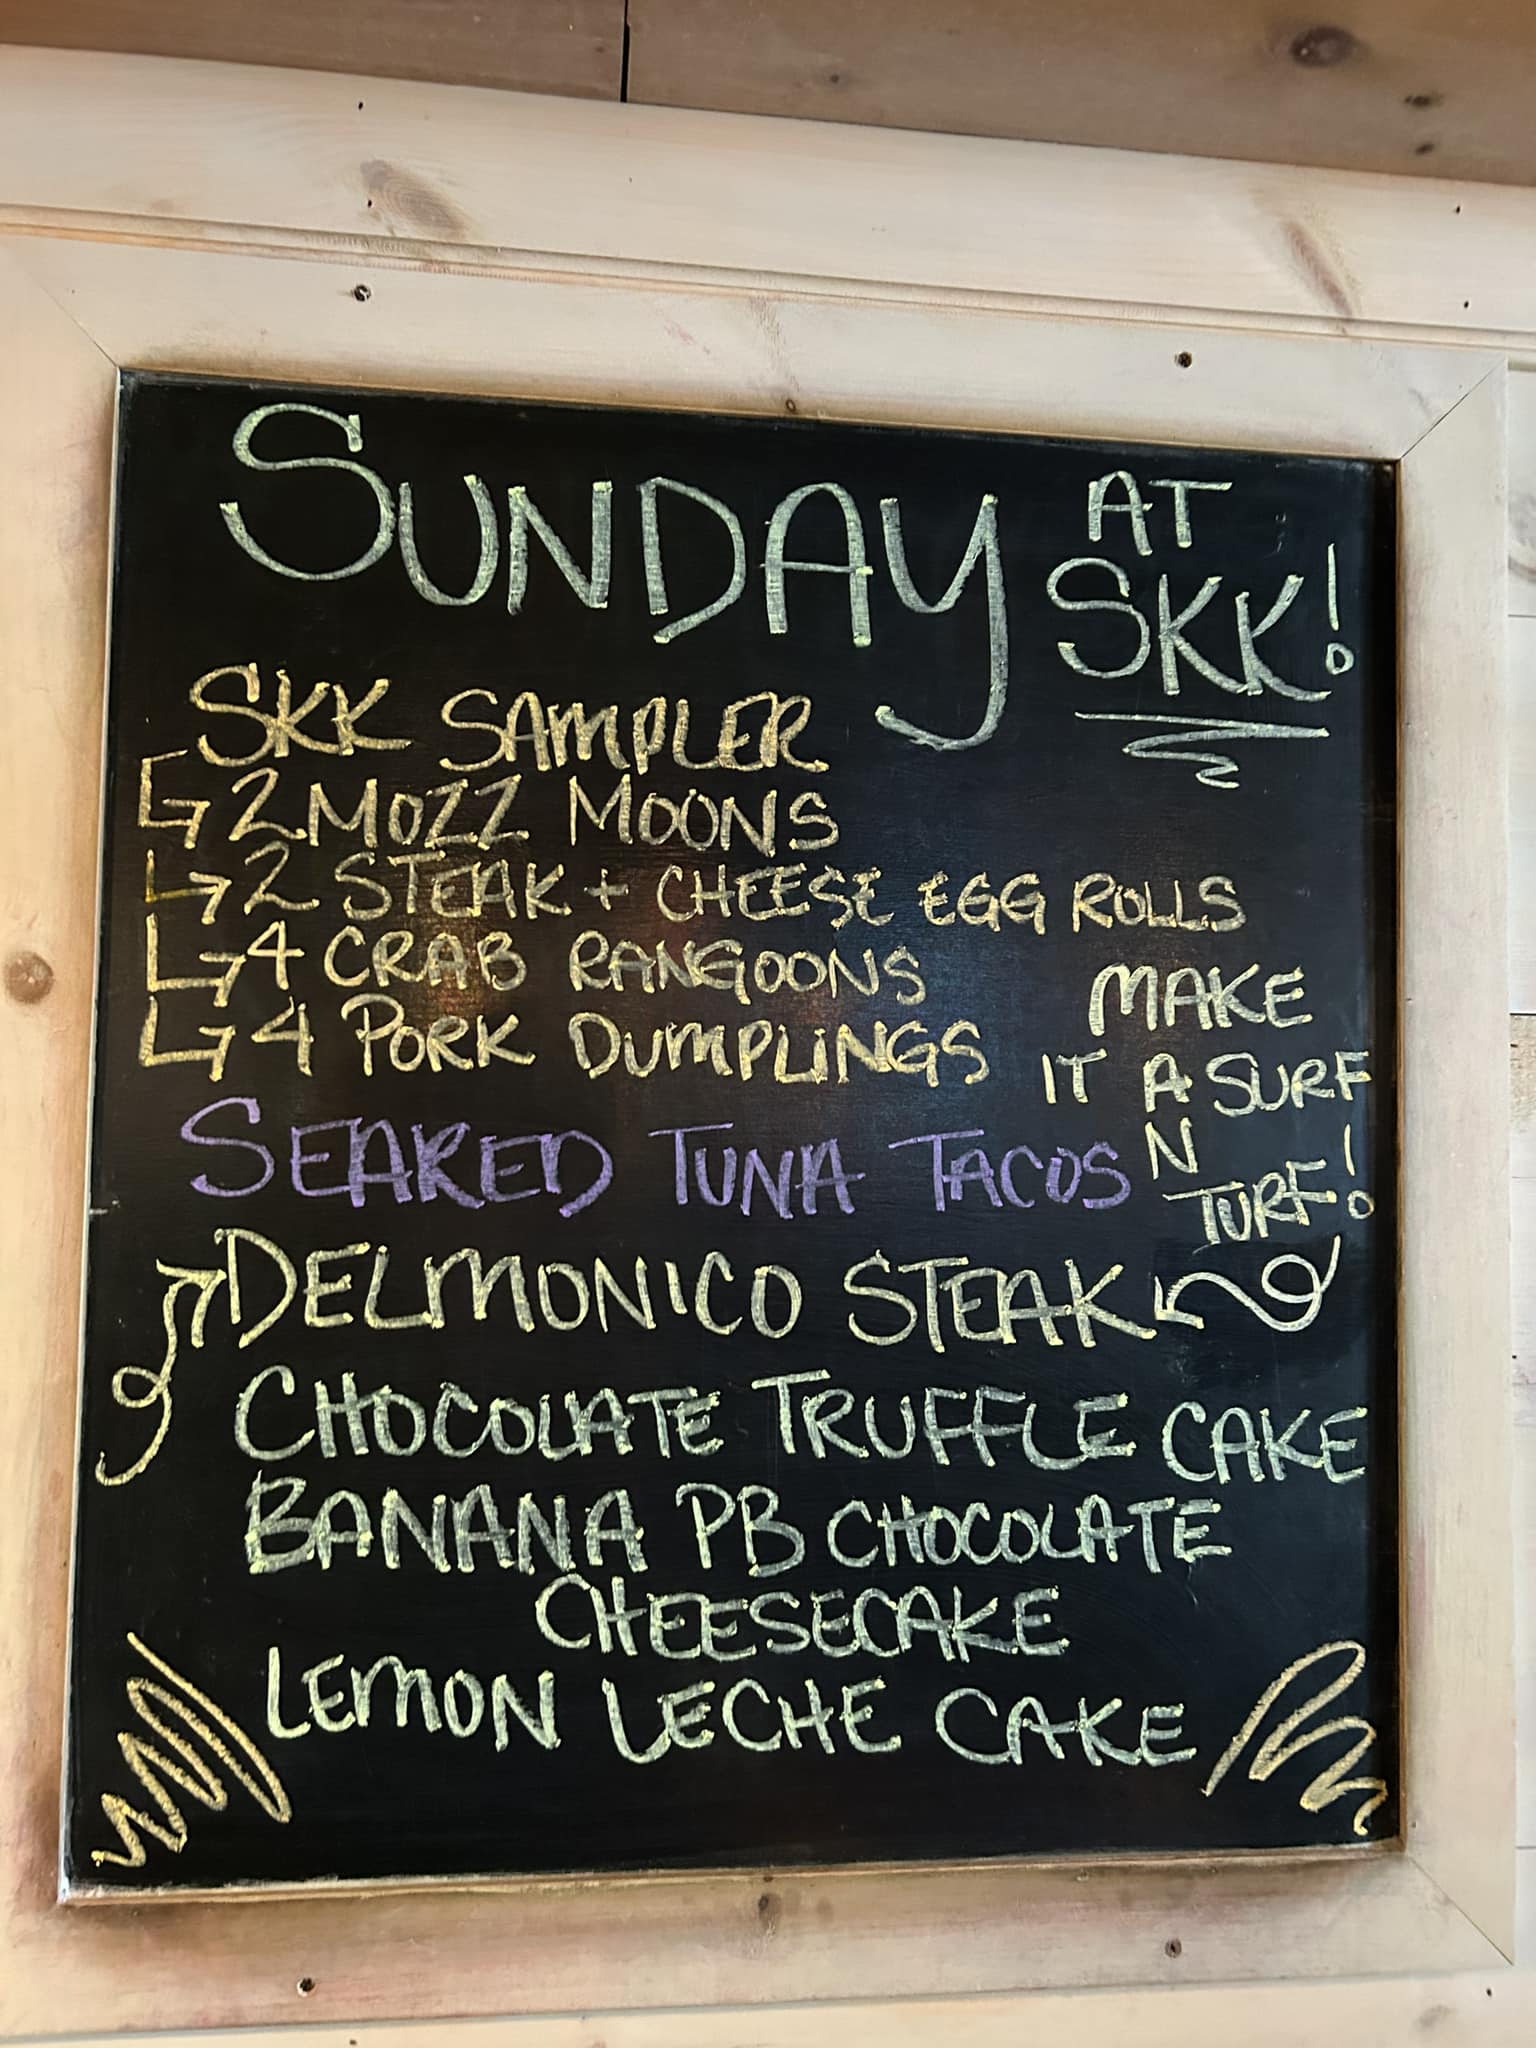 SUNDAY AT SKK!
SKK SAMPLER
2 MOZZ MOONS
2 STEAK + CHEESE EGG ROLLS
4 CRAB RANGOONS
4 PORK DUMPLINGS
SEARED TUNA TACOS
MAKE
IT A SURF
N
TURF!
DELMONICO STEAK
CHOCOLATE TRUFFLE CAKE
BANANA PB CHOCOLATE
CHEESECAKE
LEMON LECHE CAKE